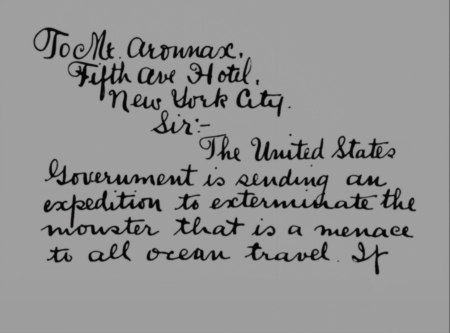 To Mr. Aronnax,
Fifth Ave Hotel,
New York City.
Sir:-
The United States
Government is sending an
expedition to exterminate the
monster that is a menace
to all ocean travel. If